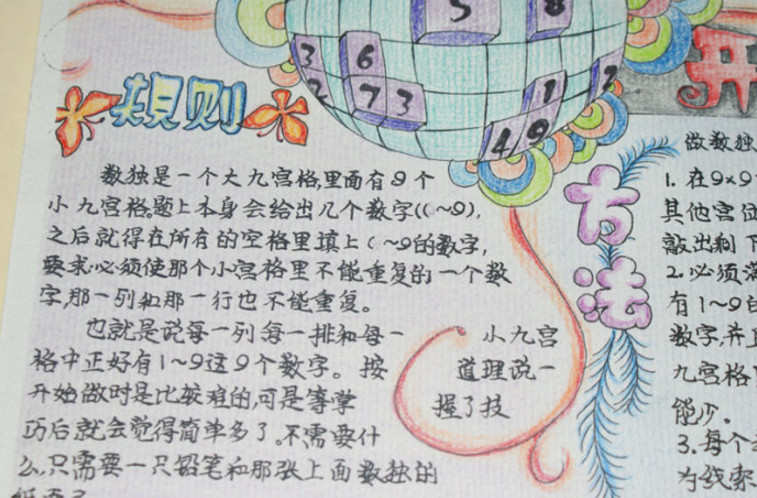 5 8
3 6
2 7 3
1 2
4 9
规则
数独是一个大九宫格,里面有9个
小九宫格。题上本身会给出几个数字((~9),
之后就得在所有的空格里填上(~9的数字,
要求必须使那个小宫格里不能重复的一个数
字,那一列和那一行也不能重复。
也就是说每一列每一排和每一 小九宫
格中正好有1~9这9个数字。按 道理说一
开始做时是比较难的,可是等掌 握了技
巧后就会觉得简单多了。不需要什
么,只需要一只铅笔和那张上面数独的
开
方法
做数独
1.在9×9
其他宫位
敲出剩下
2.必须满
有1~9的
数字,并且
九宫格
能少.
3.每个
为线索